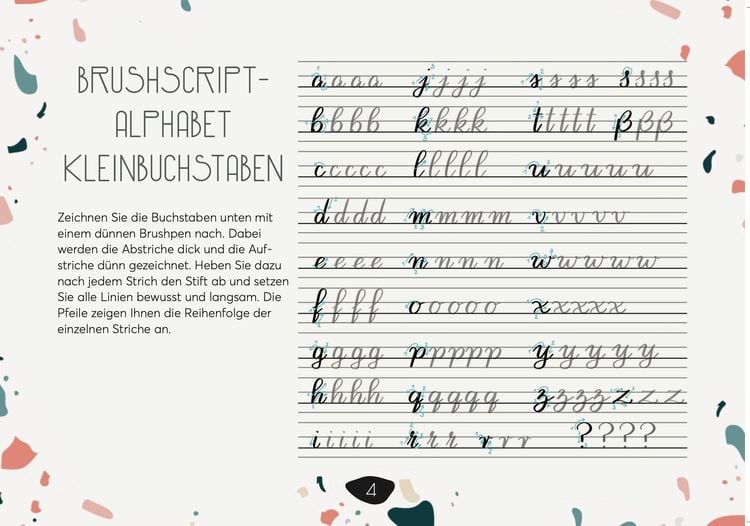 BRUSHSCRIPT-
ALPHABET
KLEINBUCHSTABEN
Zeichnen Sie die Buchstaben unten mit
einem dünnen Brushpen nach. Dabei
werden die Abstriche dick und die Auf-
striche dünn gezeichnet. Heben Sie dazu
nach jedem Strich den Stift ab und setzen
Sie alle Linien bewusst und langsam. Die
Pfeile zeigen Ihnen die Reihenfolge der
einzelnen Striche an.
a a a a j j j j j s s s s s s s s
b b b b k k k k t t t t t β β β
c c c c c l l l l l u u u u u
d d d d m m m m m v v v v v
e e e e n n n n n w w w w w
f f f f o o o o o x x x x x
g g g g p p p p p y y y y y
h h h h q q q q q z z z z z z z
i i i i i r r r r r r ? ? ? ?
4